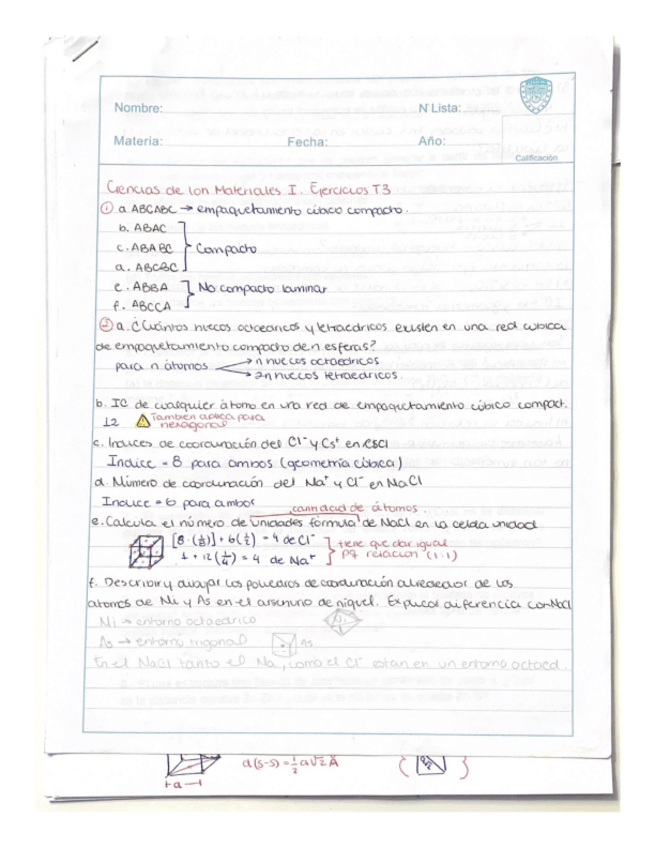 Nombre: N Lista:
Materia: Fecha: Año:
Calificación
Ciencias de los Materiales I. Ejercicios T3
① a ABCABC → empaquetamiento cúbico compacto.
b. ABAC
c. ABABC Compacto
a. ABCBC
e. ABBA No compacto laminar
f. ABCCA
② a. ¿Cuántos huecos octaedricos y tetraedricos existen en una red cúbica
de empaquetamiento compacto de n esferas?
para n átomos → n huecos octaedricos
→ 2n huecos tetraedricos.
b. IC de cualquier átomo en una red de empaquetamiento cúbico compact.
12 ⚠ También aplica para
hexagonal
c. Indices de coordinación del Cl⁻ y Cs⁺ en CsCl
Indice = 8 para ambos (geometría cúbica)
d. Número de coordinación del Na⁺ y Cl⁻ en NaCl
Indice = 6 para ambos
cantidad de átomos.
e. Calcula el número de unidades fórmula de NaCl en la celda unidad
[8·(1/8)] + 6(1/2) = 4 de Cl⁻ tiene que dar igual
1 + 12(1/4) = 4 de Na⁺ pq relación (1:1)
f. Describir y dibujar los poliedros de coordinación alrededor de los
átomos de Ni y As en el arseniuro de niquel. Explicar diferencia con NaCl
Ni → entorno octaedrico
As → entorno trigonal As
En el NaCl tanto el Na, como el Cl⁻ estan en un entorno octaed.
d(s-s) = 1/2 a√2 Å
⊢a⊣